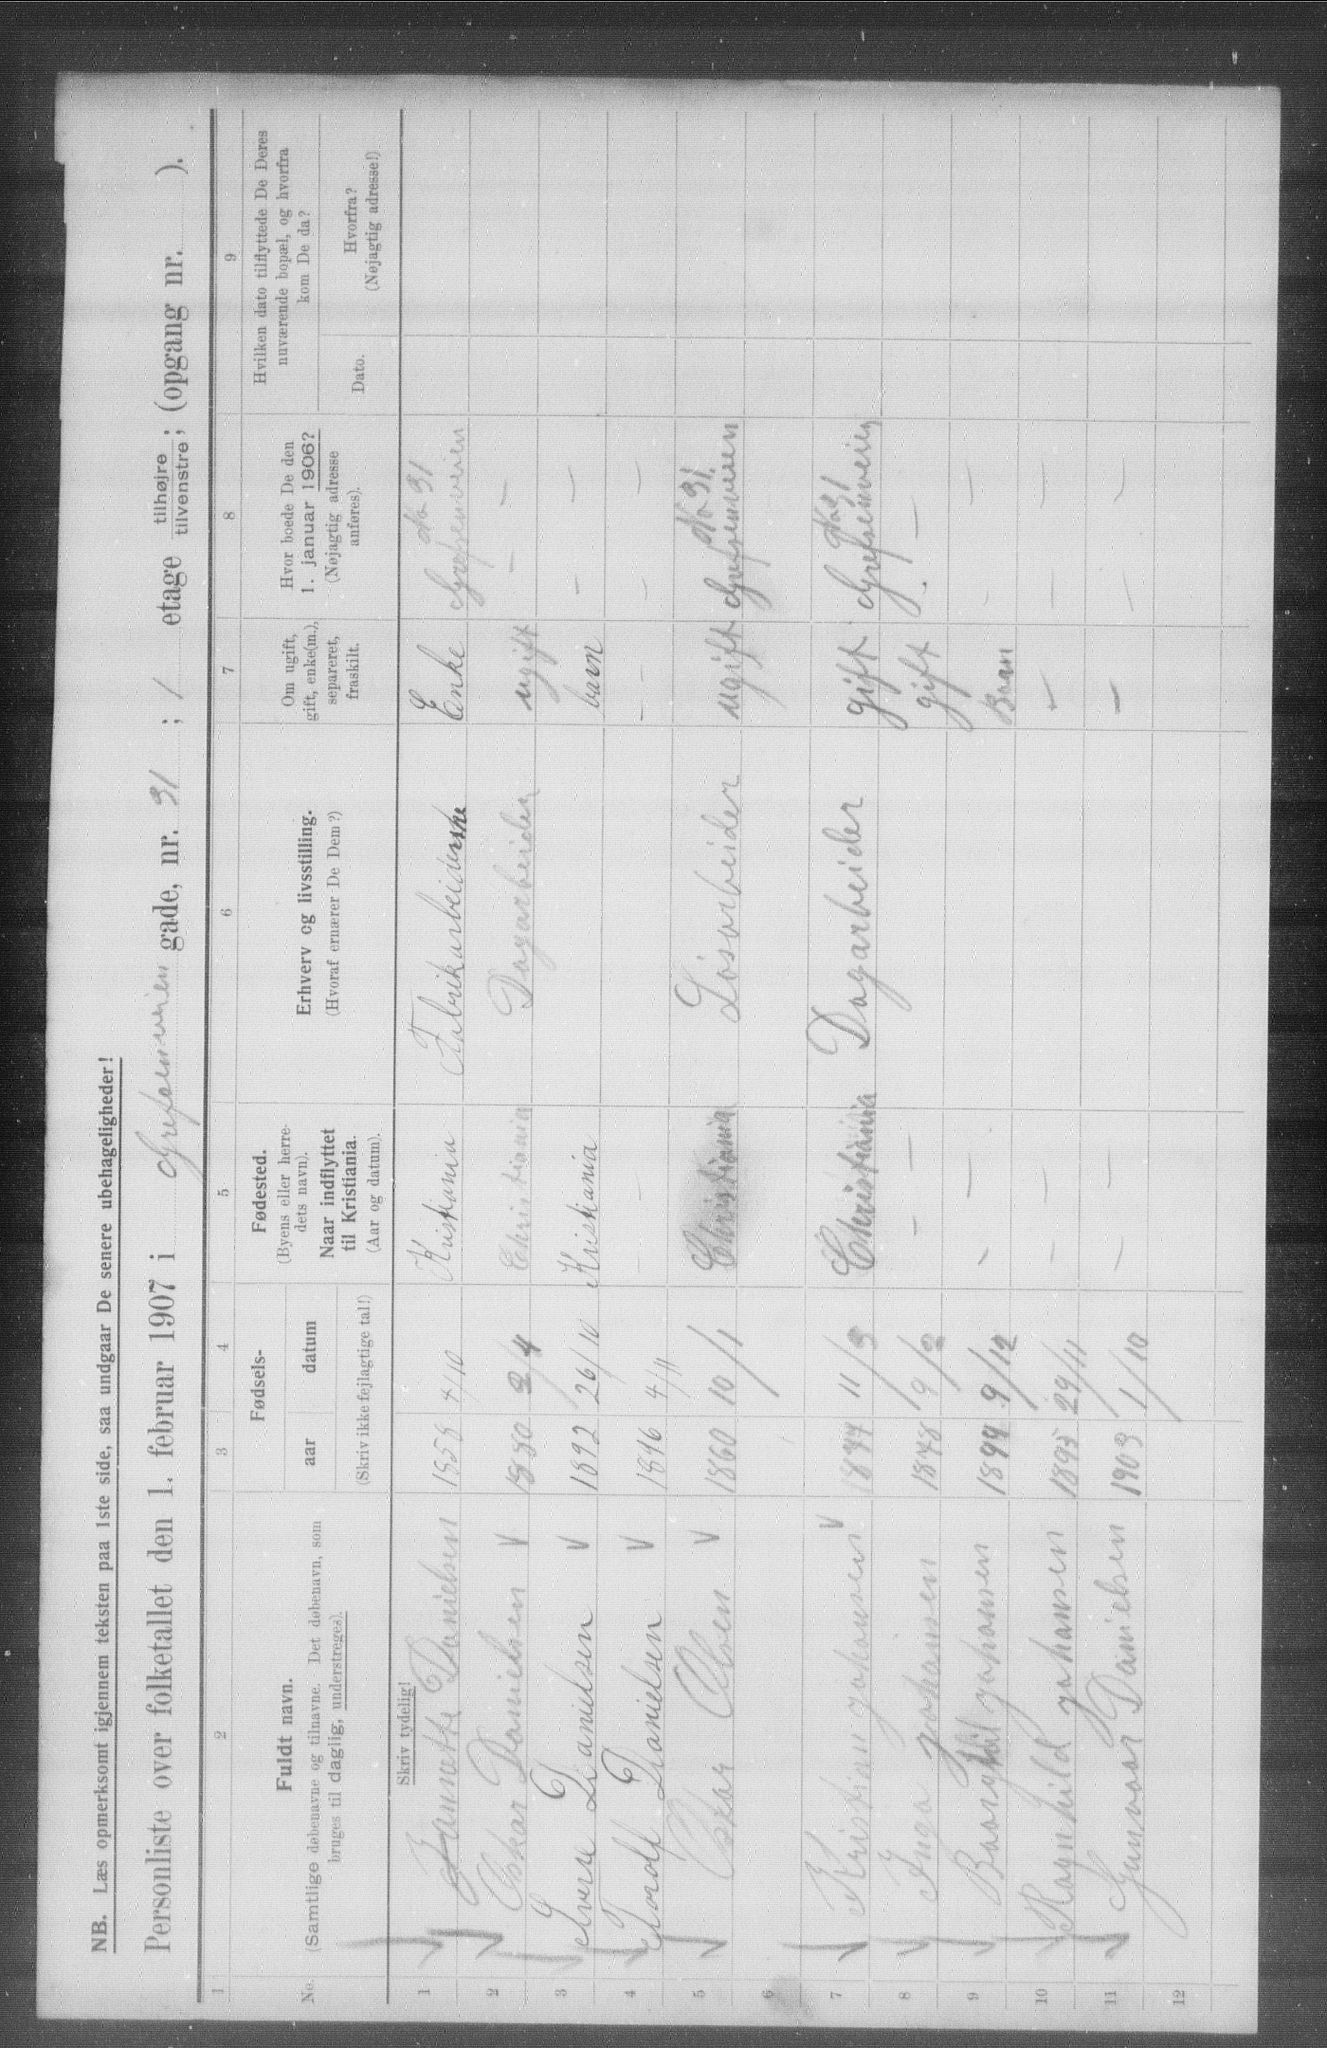 NB. Læs opmerksomt igjennem teksten paa 1ste side, saa undgaar De senere ubehageligheder!
Personliste over folketallet den 1. februar 1907 i Grefsenveien gade, nr. 31 ; 1 etage tilhøjre, tilvenstre; (opgang nr. ).
1 2 3 4 5 6 7 8 9
No. Fuldt navn. (Samtlige døbenavne og tilnavne. Det døbenavn, som bruges til daglig, understreges).
Fødsels- aar datum (Skriv ikke fejlagtige tal!)
Fødested. (Byens eller herredets navn). Naar indflyttet til Kristiania. (Aar og datum).
Erhverv og livsstilling. (Hvoraf ernærer De Dem?)
Om ugift, gift, enke(m.), separeret, fraskilt.
Hvor boede De den 1. januar 1906? (Nøjagtig adresse anføres).
Hvilken dato tilflyttede De Deres nuværende bopæl, og hvorfra kom De da?
Dato. Hvorfra? (Nøjagtig adresse!)
Skriv tydelig!
1 Jannette Danielsen 1858 4/10 Kristiania Fabrikarbeiderske Enke No 31 Grefsenveien
2 Oskar Danielsen 1880 2/4 Christiania Dagarbeider ugift — —
3 Sverre Danielsen 1892 26/10 Kristiania barn — —
4 Torolf Danielsen 1896 4/11 — — — — —
5 Oskar Olsen 1860 10/1 Christiania Løsarbeider ugift No 31. Grefsenveien
6
7 Kristian Johansen 1874 11/3 Christiania Dagarbeider gift No 31 Grefsenveien
8 Inga Johansen 1878 9/2 — — gift — —
9 Johansen 1894 9/12 — — Barn — —
10 Ragnhild Johansen 1895 29/11 — — — — —
11 Gunvoar Danielsen 1903 1/10 — — — — —
12